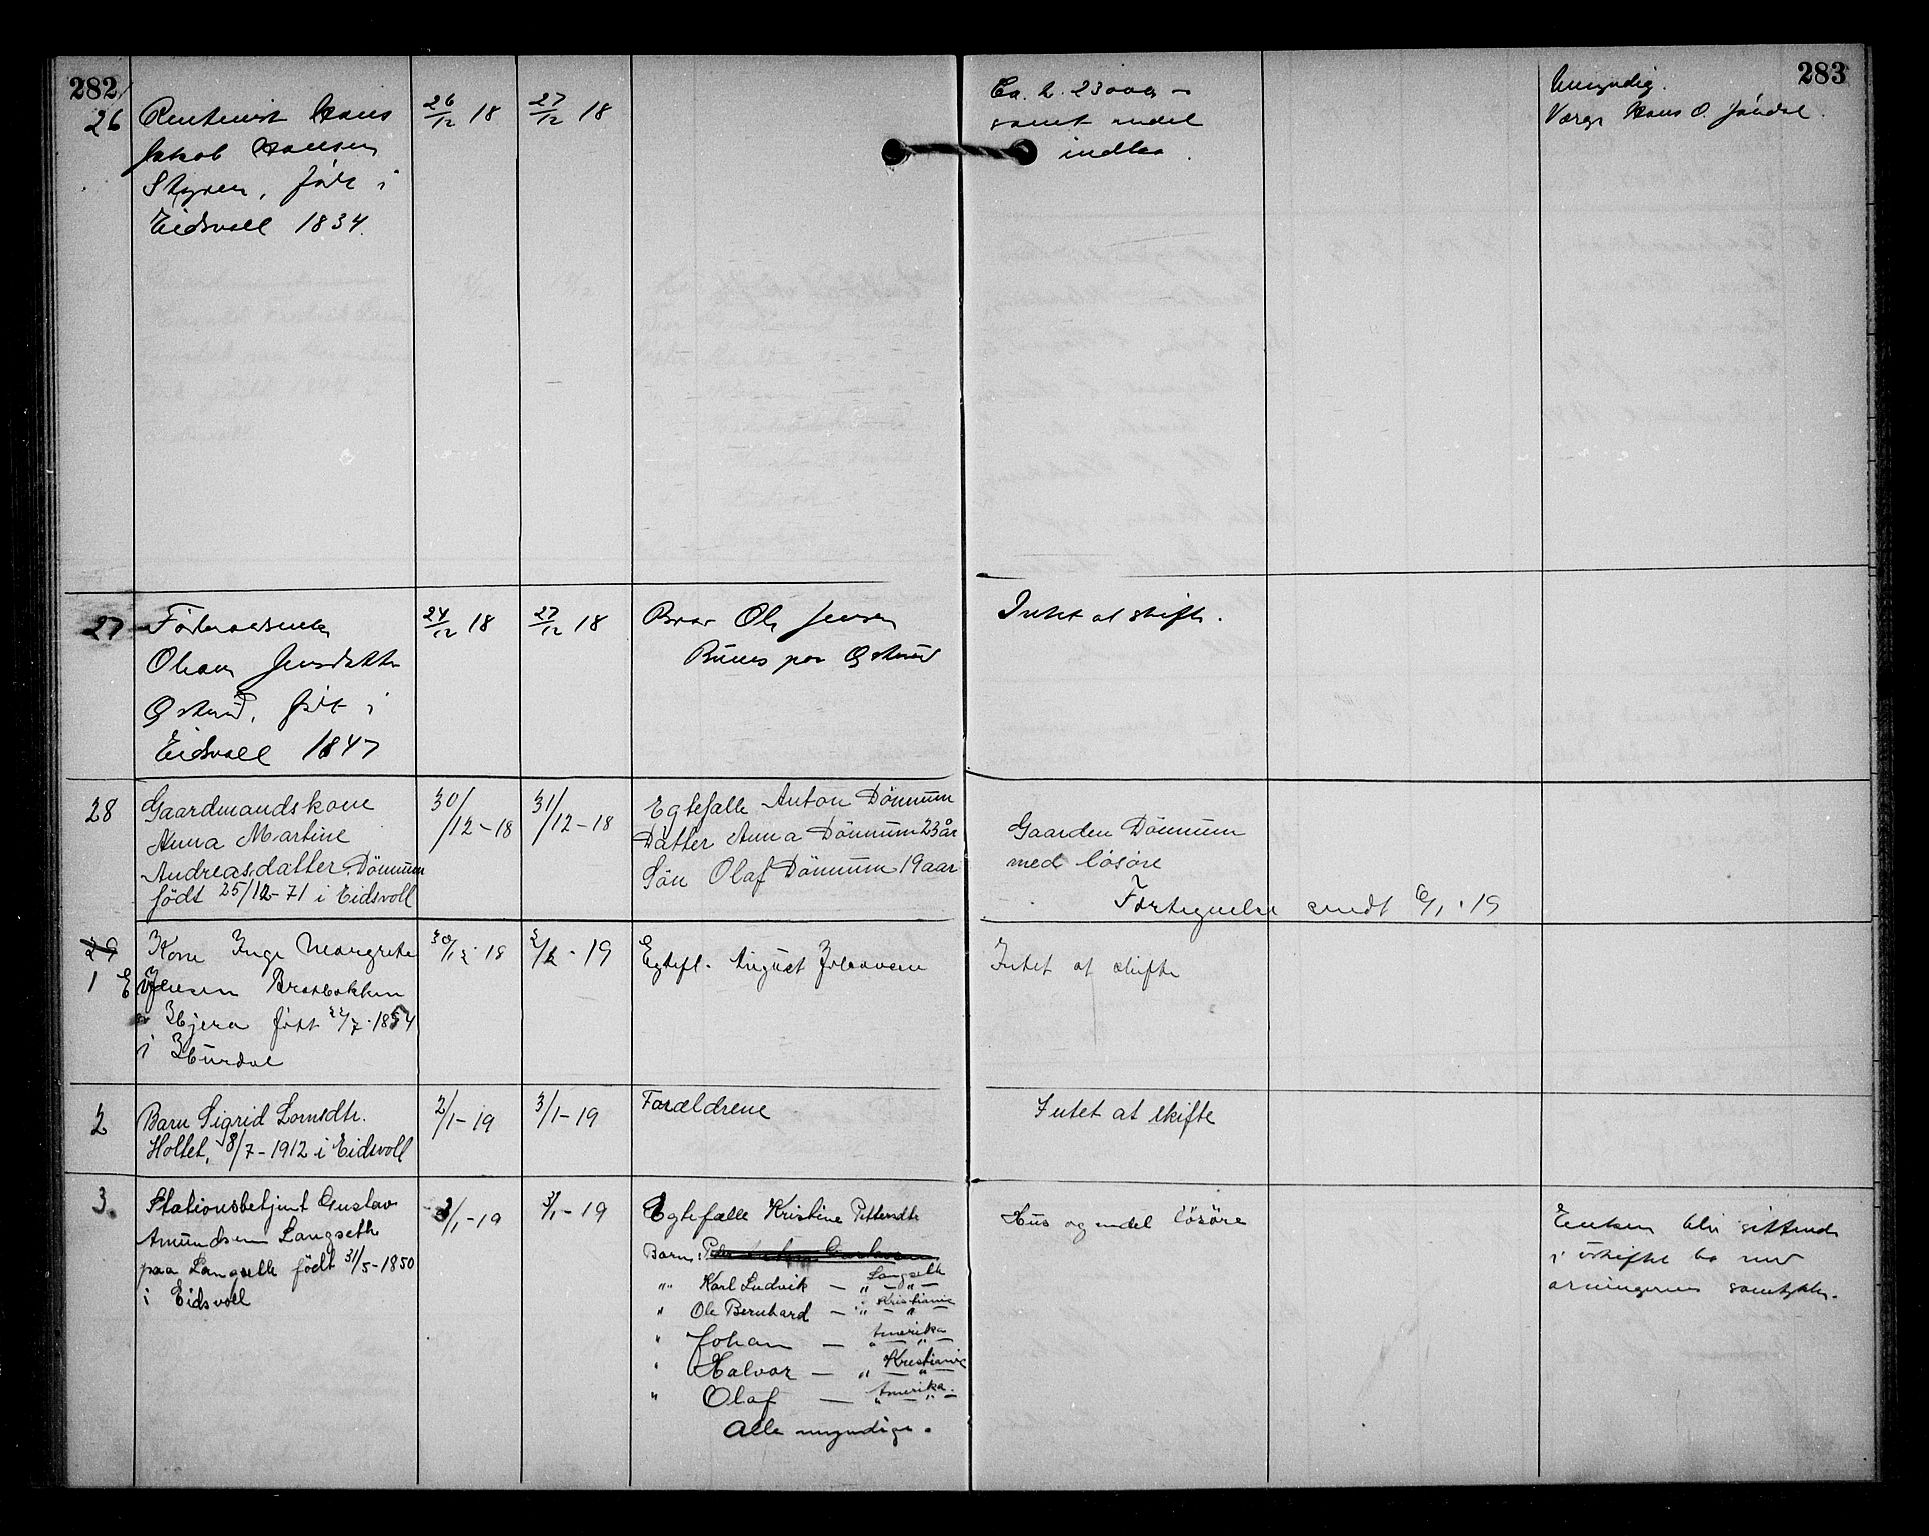 282
283
26
Rentenist Hans
Jakob Hansen
Styren, født i
Eidsvoll 1834.
26/12 18
27/12 18
Ca. 23000 –
samt endel
indbo.
Umyndig.
Værge Hans O.
27
Olsen Jensdatter
født i
Eidsvoll 1847
24/12 18
27/12 18
Bror Ole Jensen
Intet at skifte.
28
Gaardmandskone
Anna Martine
Andreasdatter Dönnum
födt 25/12-71 i Eidsvoll
30/12-18
31/12-18
Egtefælle Anton Dönnum
Datter Anna Dönnum 23 år
Sön Olaf Dönnum 19 aar
Gaarden Dönnum
med lösöre
Fortegnelse sendt 6/1-19
29
1 E
Kone Inge Margrete
Jensen Brætbakken
født 22/7-1854
i Hurdal
30/12-18
2/1-19
Egtefl. August
Intet at skifte
2
Barn Sigrid
Holtet, 8/7-1912 i Eidsvoll
2/1-19
3/1-19
Forældrene
Intet at skifte
3.
Stationsbetjent Gustav
Amundsen Langseth
paa Langseth födt 31/5-1850
i Eidsvoll
3/1-19
3/1-19
Egtefælle Kristine
Barn:
"" Karl Ludvik — " Langseth
" Ole Bernhard — " Kristiania
" Johan — " Amerika
" Halvor — " Kristiania
" Olaf — " Amerika.
Alle myndige.
Hus og endel lösöre
Enken blir sittende
i uskiftet bo med
arvingernes samtykke.